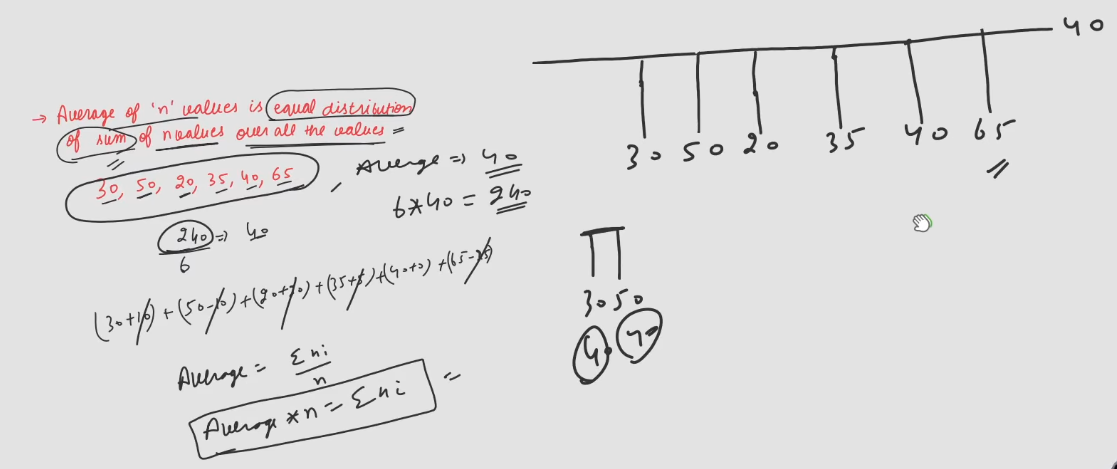 → Average of 'n' values is equal distribution
of sum of n values over all the values =
30, 50, 20, 35, 40, 65 , Average => 40
6*40 = 240
240 => 40
6
(30+10) + (50-10) + (20+20) + (35+5) + (40+0) + (65-25)
Average = Σni
n
Average *n = Σni =
40
30 50 20 35 40 65
30 50
40 40